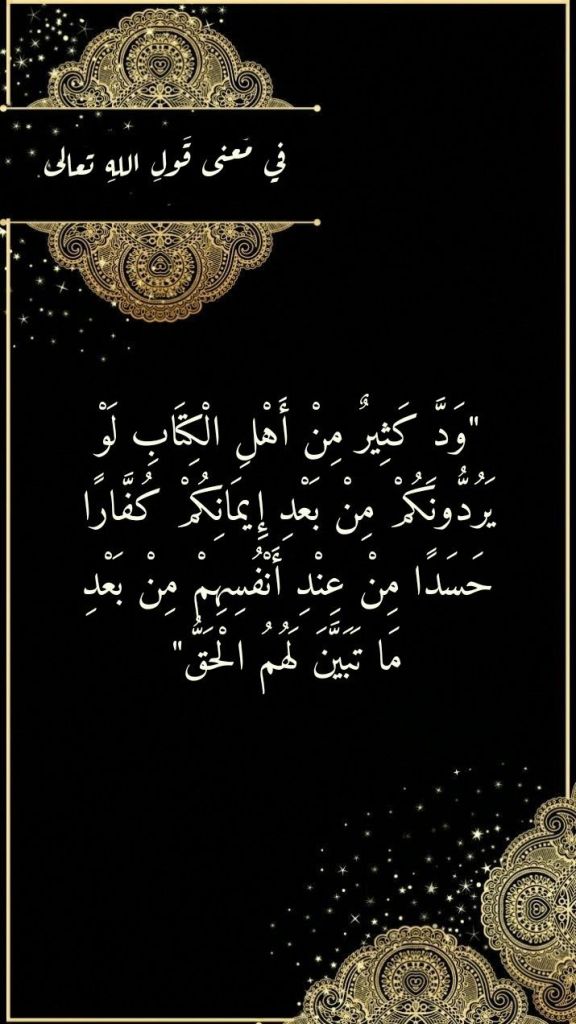 في مَعنى قَولِ اللهِ تعالى
"وَدَّ كَثِيرٌ مِنْ أَهْلِ الْكِتَابِ لَوْ
يَرُدُّونَكُمْ مِنْ بَعْدِ إِيمَانِكُمْ كُفَّارًا
حَسَدًا مِنْ عِنْدِ أَنْفُسِهِمْ مِنْ بَعْدِ
مَا تَبَيَّنَ لَهُمُ الْحَقُّ"